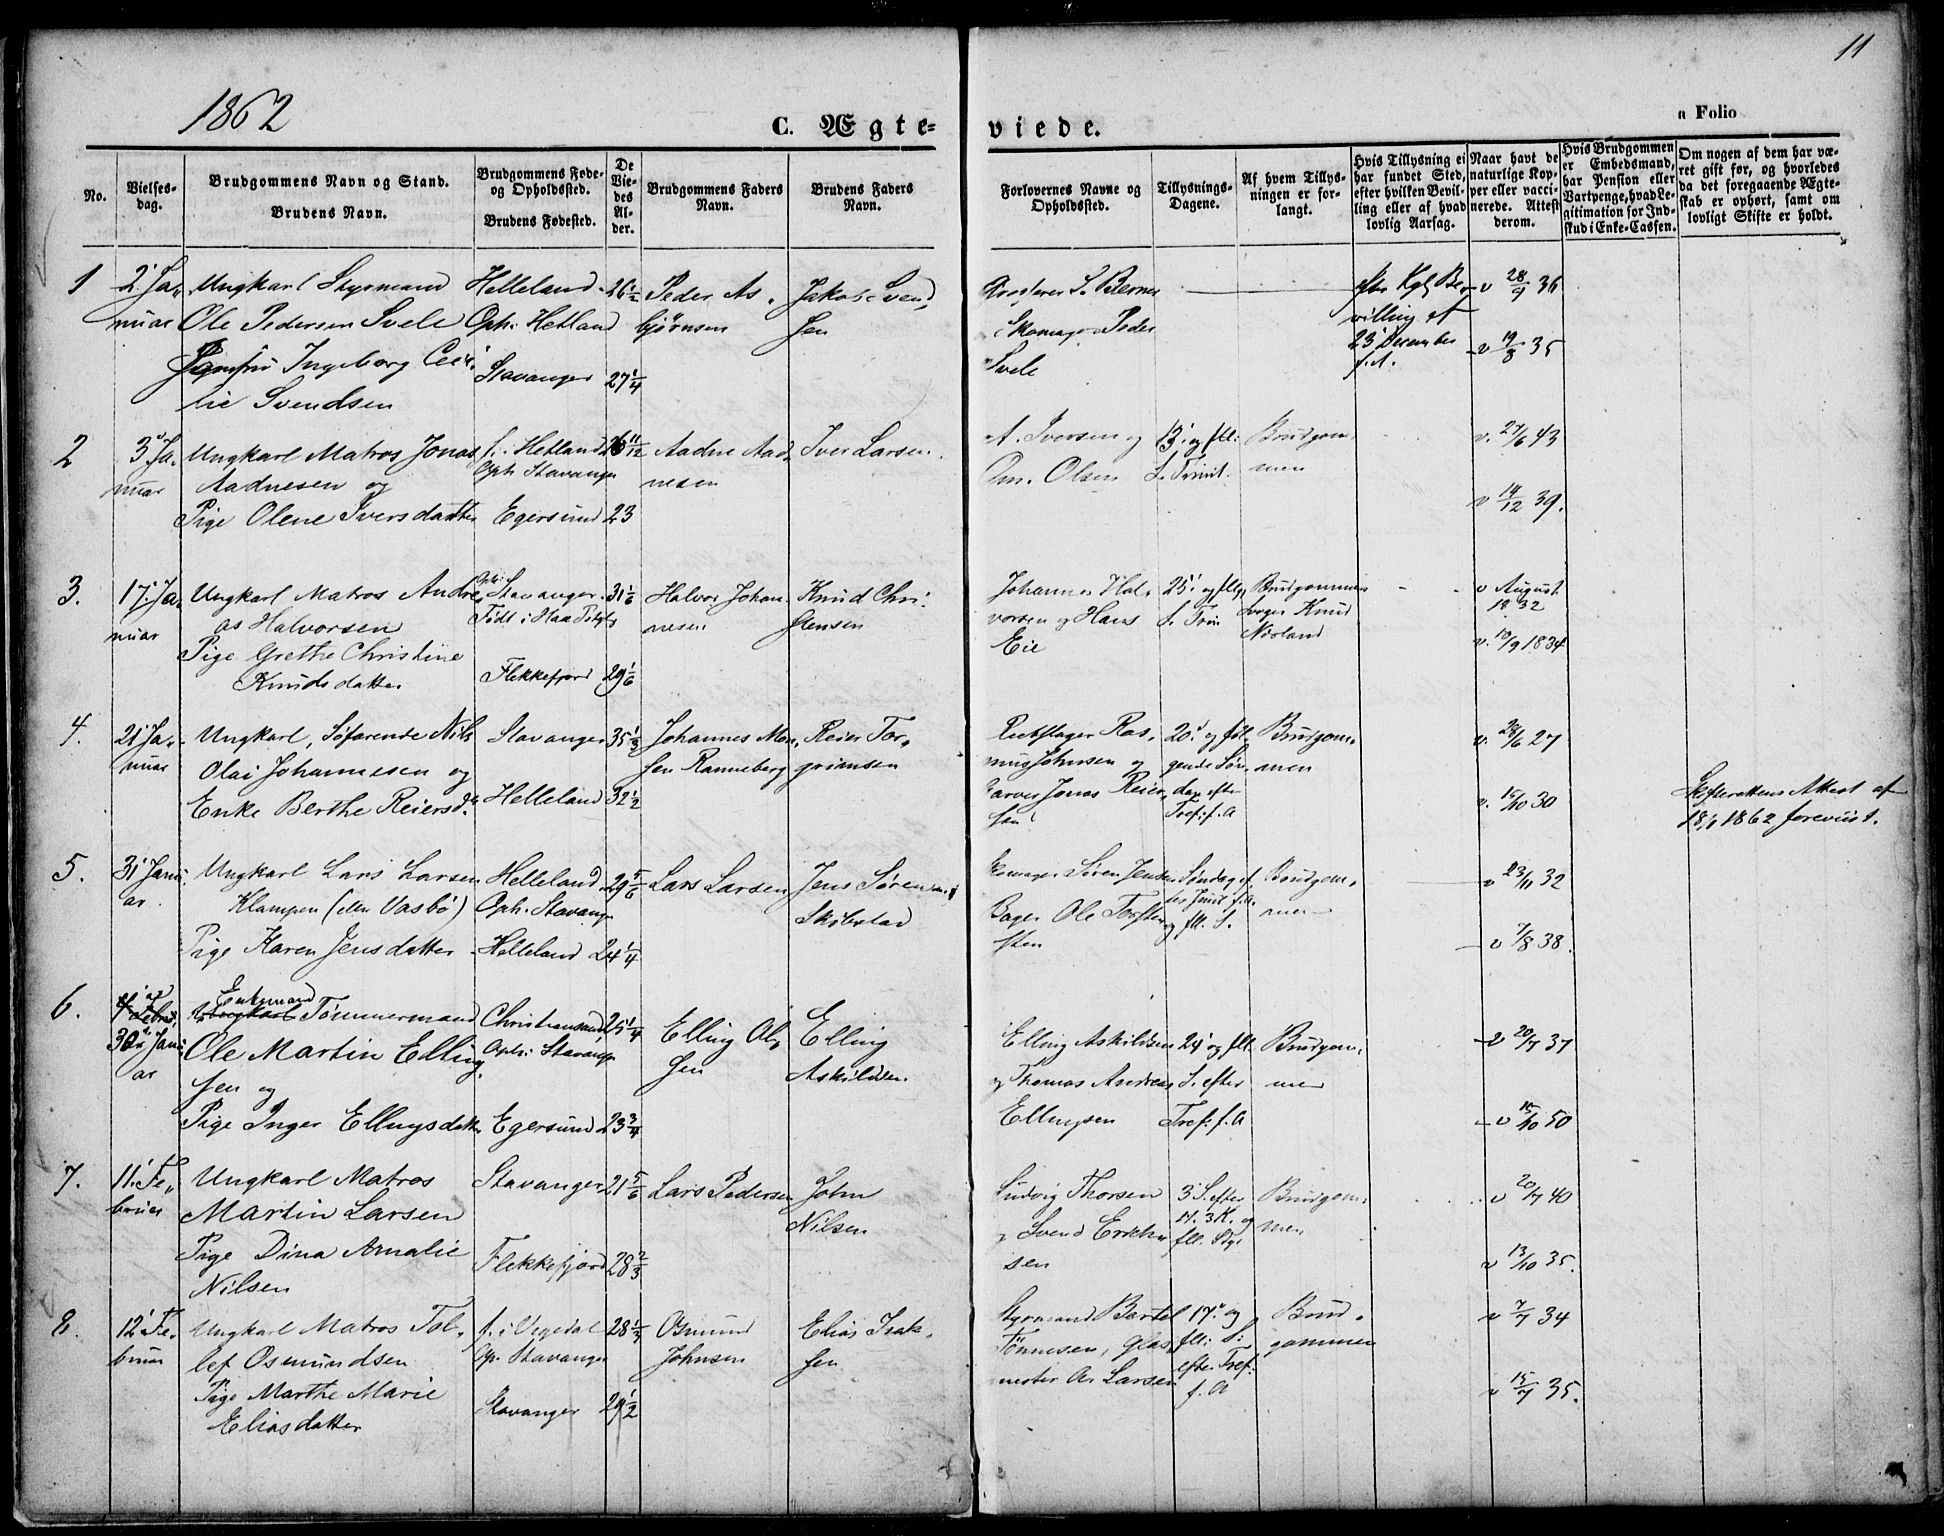 11
1862
C. Ægte-
viede.
a Folio
No.
Vielses-
dag.
Brudgommens Navn og Stand.
Brudens Navn.
Brudgommens Føde-
og Opholdssted.
Brudens Fødested.
De
Vie-
des
Al-
der.
Brudgommens Faders
Navn.
Brudens Faders
Navn.
Forlovernes Navne og
Opholdssted.
Tillysnings-
Dagene.
Af hvem Tillys-
ningen er for-
langt.
Hvis Tillysning ei
har fundet Sted,
efter hvilken Bevil-
ling eller af hvad
lovlig Aarsag.
Naar havt de
naturlige Kop-
per eller vacci-
nerede. Attest
derom.
Hvis Brudgommen
er Embedsmand,
har Pension eller
Vartpenge, hvad Le-
gitimation for Ind-
skud i Enke-Cassen.
Om nogen af dem har væ-
ret gift før, og hvorledes
da det foregaaende Ægte-
skab er ophørt, samt om
lovligt Skifte er holdt.
1
2' Ja-
nuar
Ungkarl Styrmand
Ole Pedersen Svele
Jomfru Ingeborg Ceci-
lie Svendsen
Helleland
Oph: Hetland
Stavanger
26 1/2
27 1/4
Peder As-
bjørnsen
Jakob Svend-
sen
S. Berner
Skomager Peder
Svele
efter Kgl. Be-
villing af
23' December
f. A.
v 28/9 36
v 19/8 35
2
3' Ja-
nuar
Ungkarl Matros Jonas
Aadnesen og
Pige Olene Iversdatter
f. i Hetland
Oph Stavanger
Egersund
26 11/12
23
Aadne Aad-
nesen
Iver Larsen
A. Iversen og
Om. Olsen
13' og fll:
S. Trinit.
Brudgom-
men
v. 27/6 43
v 14/12 39.
3.
17' Ja-
nuar
Ungkarl Matros Andre-
as Halvorsen
Pige Grethe Christine
Knudsdatter
Oph: Stavanger
Født i Haa
Flekkefjord
31 1/6
29 1/6
Halvor Johan-
nesen
Knud Chri-
stensen
Johannes Hal-
vorsen og Hans
Eie
25' og flg
S. Trin
Brudgommens
Svoger Knud
Nærland
v August
1832
v. 10/9 1834
4.
21' Ja-
nuar
Ungkarl, Søfarende Nils
Olai Johannesen og
Enke Berthe Reiersd.
Stavanger
Helleland
35 1/3
32 1/2
Johannes Mon-
sen Ranneberg
Reier Tor-
griimsen
Rebslager Ras-
mus Johnsen og
Garver Jonas Reier-
sen
20' og føl-
gende Søn-
dage efter
Tref: f. A
Brudgom-
men
v. 28/6 27
v. 15/10 30
Skifterettens Attest af
18/1 1862 forevist.
5.
31' Janu-
ar
Ungkarl Lars Larsen
Klampen (eller Vasbø)
Pige Karen Jensdatter
Helleland
Oph: Stavanger
Helleland
29 5/6
24 1/4
Lars Larsen
Jens Sørensen
Skibstad
Skomager Søren Jensen
Bager Ole Torsten-
sten
Søndag ef-
ter Trinit f. A.
og fll. S.
Brudgom-
men
v 23/11 32
v 7/8 38.
6.
4' Febru-
ar
30' Janu-
ar
Enkemand
Ungkarl Tømmermand
Ole Martin Elling-
sen og
Pige Inger Ellingsdatter
Christiansand
Oph: Stavanger
Egersund
25 1/4
23 3/4
Elling Ol-
sen
Elling
Askildsen.
Elling Askildsen
og Thomas Andreas
Ellingsen
24' og fll.
S. efter
Tref: f. A
Brudgom-
men
v 20/7 37
v 15/10 50
7.
11' Fe-
bruar
Ungkarl Matros
Martin Larsen
Pige Dina Amalie
Nilsen
Stavanger
Flekkefjord
21 5/6
28 2/3
Lars Pedersen
John
Nilsen
Ludvig Thorsen
og Svend Erich-
sen
3' S. efter
H. 3 K. og
fll.
Brudgom-
men
v 20/7 40
v 13/10 35.
8.
12' Fe-
bruar
Ungkarl Matros Tol-
lef Osmundsen
Pige Marthe Marie
Eliasdatter
f. i
Op. Stavanger
Stavanger
28 1/3
29 1/2
Osmund
Johnsen
Elias Isak-
sen
Styrmand Bertel
Tønnesen, Glas-
mester A. Larsen
17' og
fll: S:
efter Tref:
f. A
Brud-
gommen
v 7/7 34
v 15/7 35.